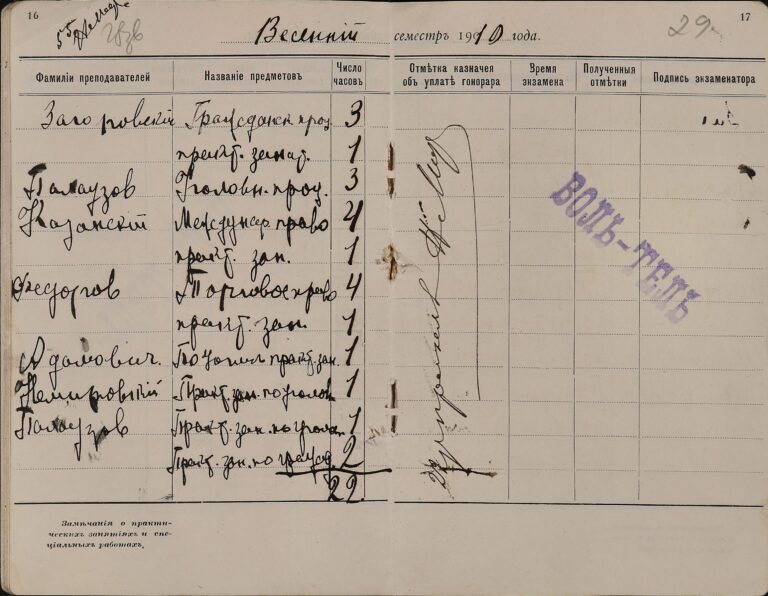 16
17
29
Весенній семестръ 1910 года.
Фамиліи преподавателей
Названіе предметовъ
Число часовъ
Отмѣтка казначея объ уплатѣ гонорара
Время экзамена
Полученныя отмѣтки
Подпись экзаменатора
Загоровскій Граждanск. проц. 3
практ. занят. 1
Палаузов Уголовн. проц. 3
Казанскій Междунар. право 4
практ. зан. 1
Федоров Торговое право 4
практ. зан. 1
Адамович. практ. зан. 1
Немировскій Практ. зан. по уголов 1
Палаузов Практ. зан. по 1
Практ. зан. по гражд. 2
22
ВОЛЬ-ТЕЛЬ
Замѣчанія о практи-
ческихъ занятіяхъ и спе-
ціальныхъ работахъ.